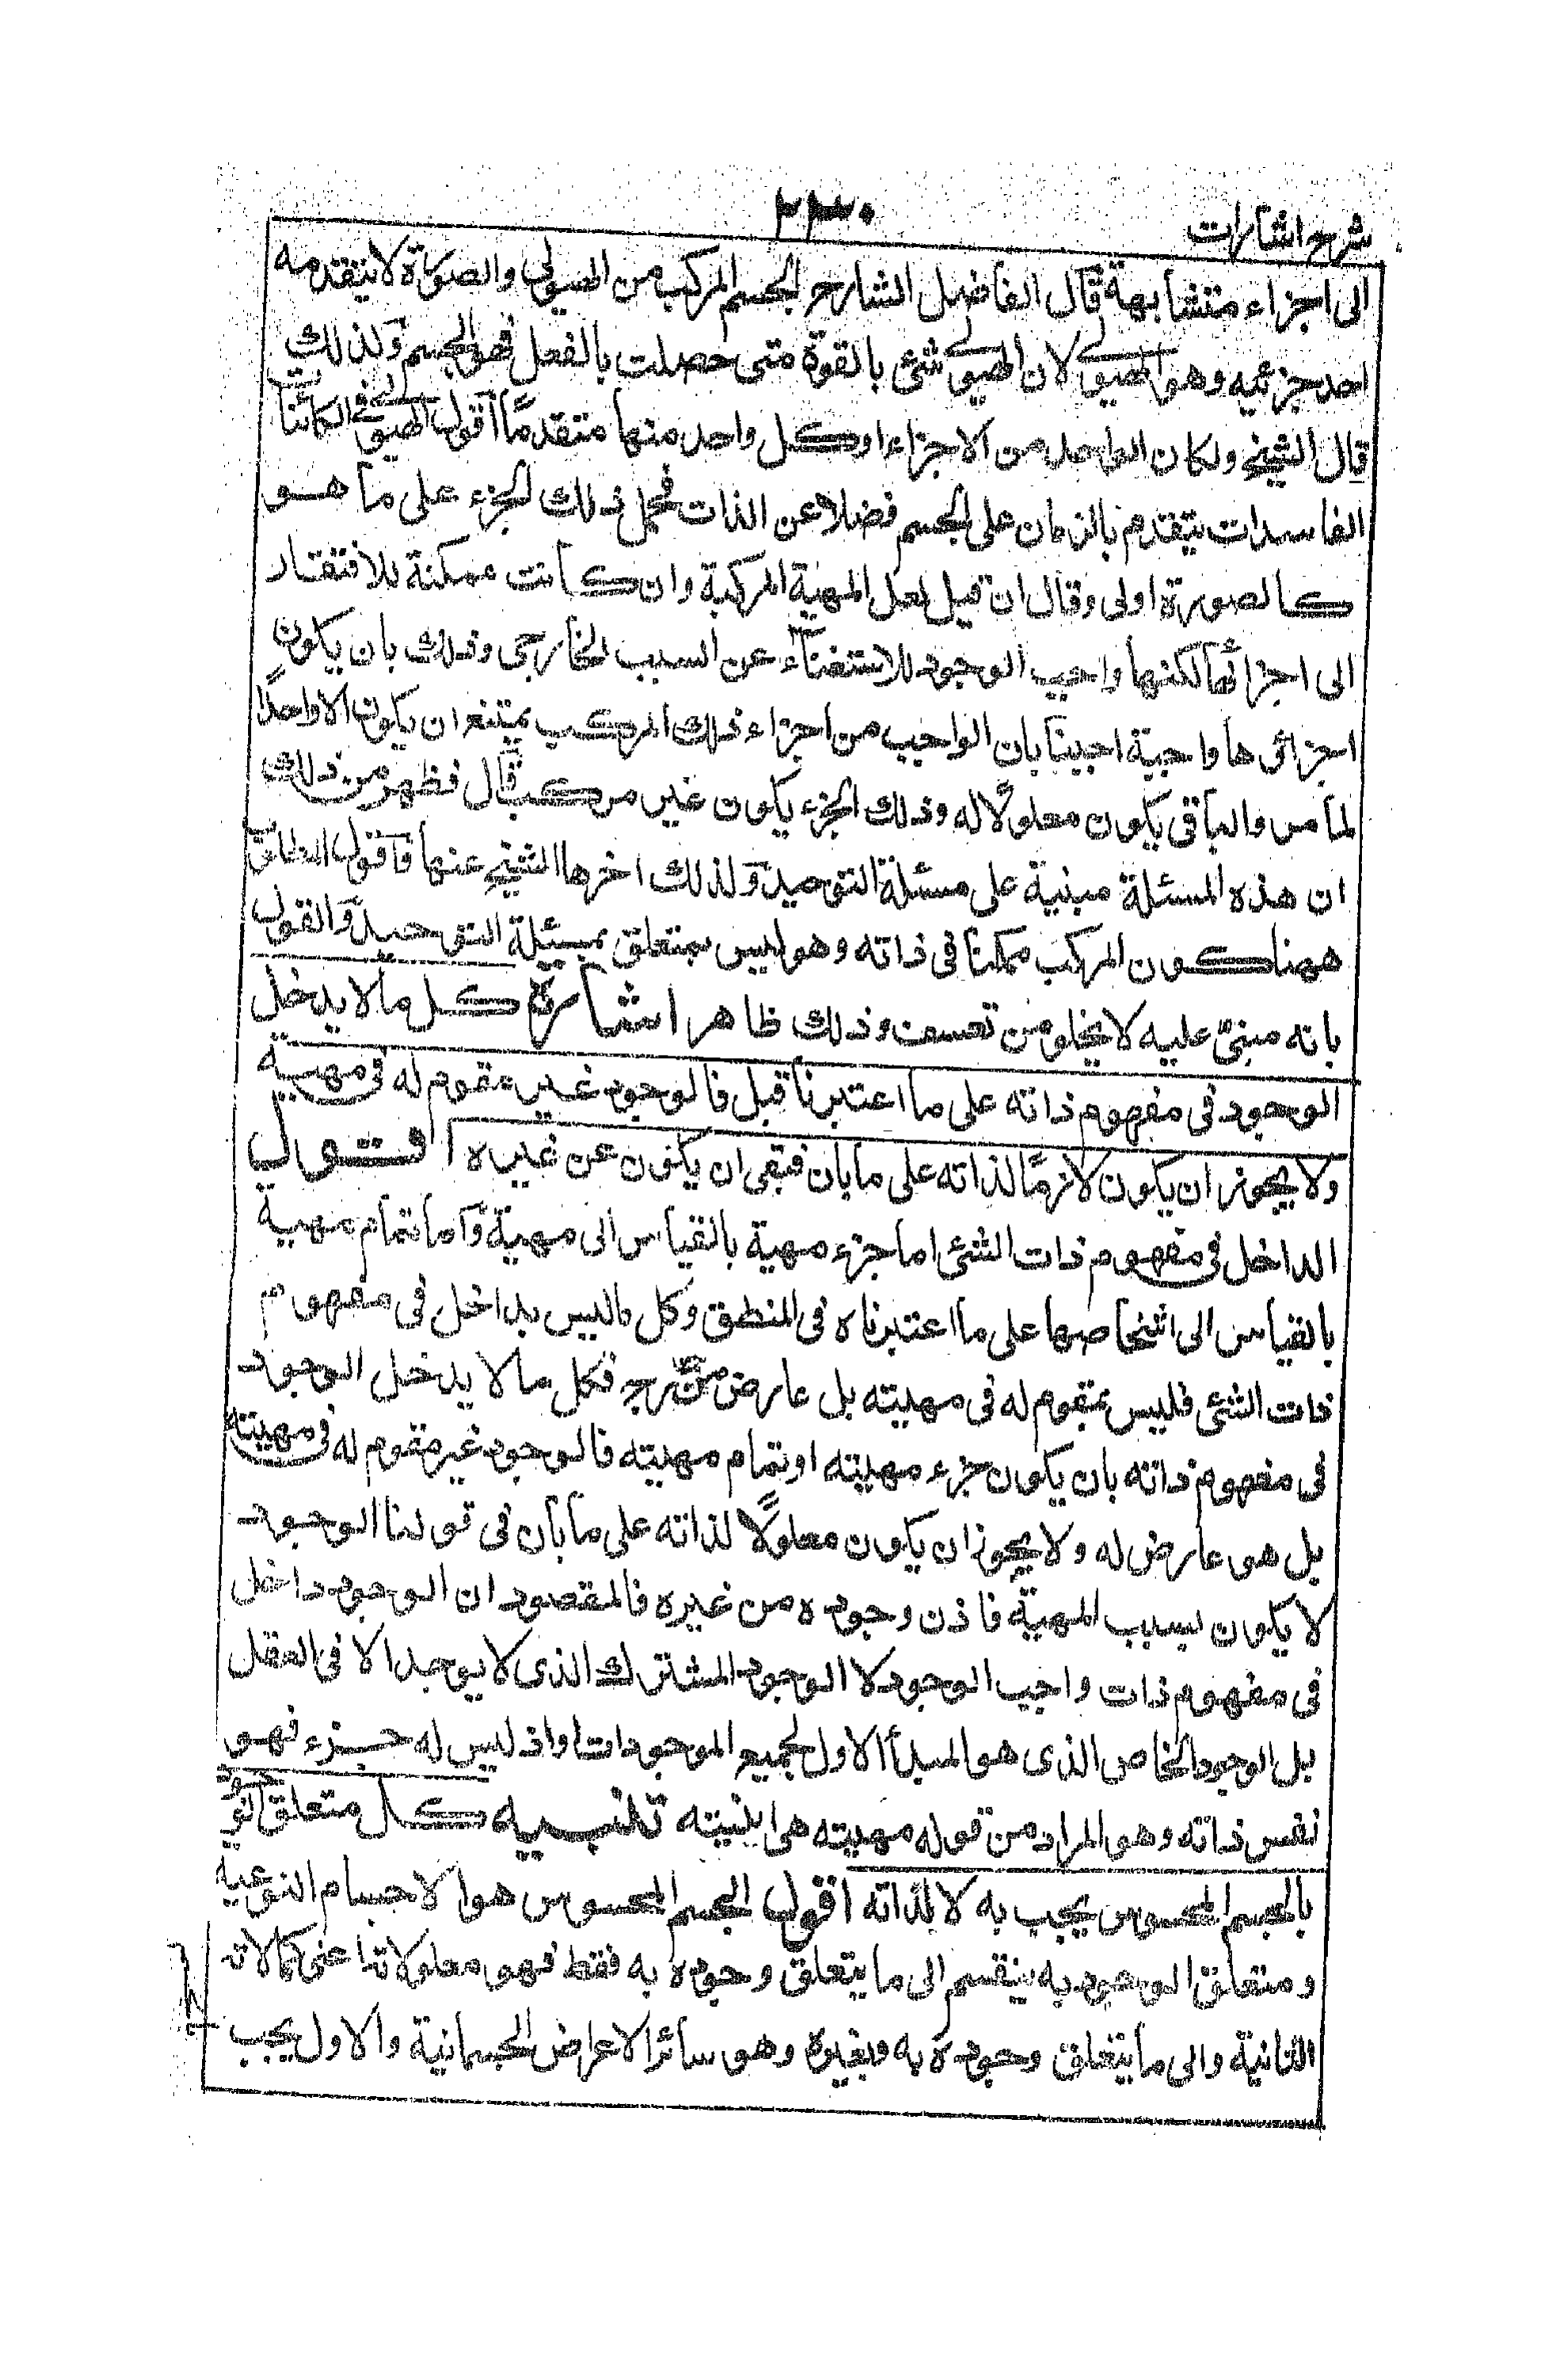 شرح اشارات
الى اجزاء متشابهة قال الفاضل الشارح الجسم المركب من الهيولى والصورة لا يتقدمه
احد جزئيه وهو الهيولى لان الهيولى شئ بالقوة متى حصلت بالفعل فهو الجسم ولذلك
قال الشيخ ولكان الواحد من الاجزاء او كل واحد منها متقدمًا اقول الهيولى في الكائنات
الفاسدات يتقدم بالزمان على الجسم فضلا عن الذات فحمل ذلك الجزء على ما هو
كالصورة اولى وقال ان قيل لعل المهية المركبة وان كانت ممكنة للافتقار
الى اجزائها لكنها واجب الوجود للاستغناء عن السبب الخارجى وذلك بان يكون
اجزائ ها واجبة اجبنا بان الواجب من اجزاء ذلك المركب يمتنع ان يكون الا واحدًا
لما مر والباقى يكون معلولًا له وذلك الجزء يكون غير مركب قال فظهر من ذلك
ان هذه المسئلة مبنية على مسئلة التوحيد ولذلك اخرها الشيخ عنها فاقول المطلوب
ههنا كون المركب ممكنا فى ذاته وهو ليس بمتعلق بمسئلة التوحيد والقول
بانه مبنىّ عليه لا يخلو من تعسف وذلك ظاهر اشارة كل ما لا يدخل
الوجود فى مفهوم ذاته على ما اعتبرنا قبل فالوجود غير مقوم له فى مهية
ولا يجوز ان يكون لازمًا لذاته على ما بان فبقى ان يكون عن غيره اقول
الداخل فى مفهوم ذات الشئ اما جزء مهية بالقياس الى مهية واما تمام مهية
بالقياس الى اشخاصها على ما اعتبرناه فى المنطق وكل ما ليس بداخل فى مفهوم
ذات الشئ فليس بمقوم له فى مهيته بل عارض من خارج فكل ما لا يدخل الوجود
فى مفهوم ذاته بان يكون جزء مهيته او تمام مهيته فالوجود غير مقوم له فى مهيته
بل هو عارض له ولا يجوز ان يكون معلولًا لذاته على ما بان فى قولنا الوجود
لا يكون بسبب المهية فاذن وجوده من غيره فالمقصود ان الوجود داخل
فى مفهوم ذات واجب الوجود لا الوجود المشترك الذى لا يوجد الا فى العقل
بل الوجود الخاص الذى هو المبدأ الاول لجميع الموجودات واذ ليس له جزء فهو
نفس ذاته وهو المراد من قوله مهيته هى اينيته تنبيه كل متعلق الوجود
بالجسم المحسوس يجب به لا بذاته اقول الجسم المحسوس هو الاجسام النوعية
ومتعلق الوجود به ينقسم الى ما يتعلق وجوده به فقط فهو معلولاته اعنى كمالاته
الثانية والى ما يتعلق وجوده به وبغيره وهو سائر الاعراض الجسمانية والاول يجب